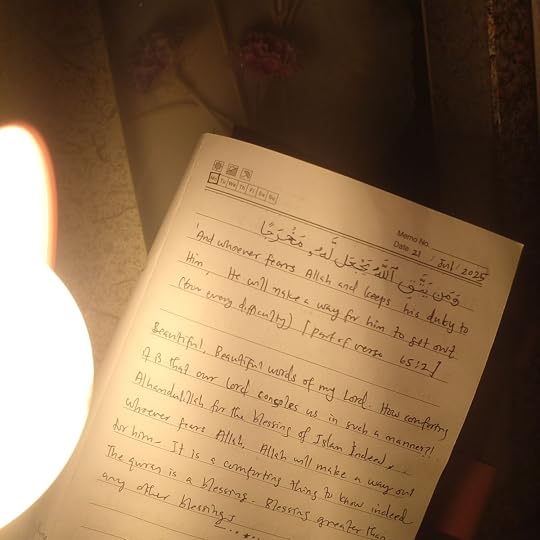 Mo Tu We Th Fr Sa Su
Memo No.
Date 21 / Jul / 2025
وَمَن يَتَّقِ ٱللَّهَ يَجْعَل لَّهُۥ مَخْرَجًا
'And whoever fears Allah and keeps his duty to
Him' He will make a way for him to get out
(from every difficulty) [part of verse 65:2]
Beautiful, Beautiful words of my Lord. How comforting
it is that our Lord consoles us in such a manner?!
Alhamdulillah for the blessing of Islam Indeed...
Whoever fears Allah, Allah will make a way out
for him- It is a comforting thing to know indeed
The quran is a blessing. Blessing greater than
any other blessings